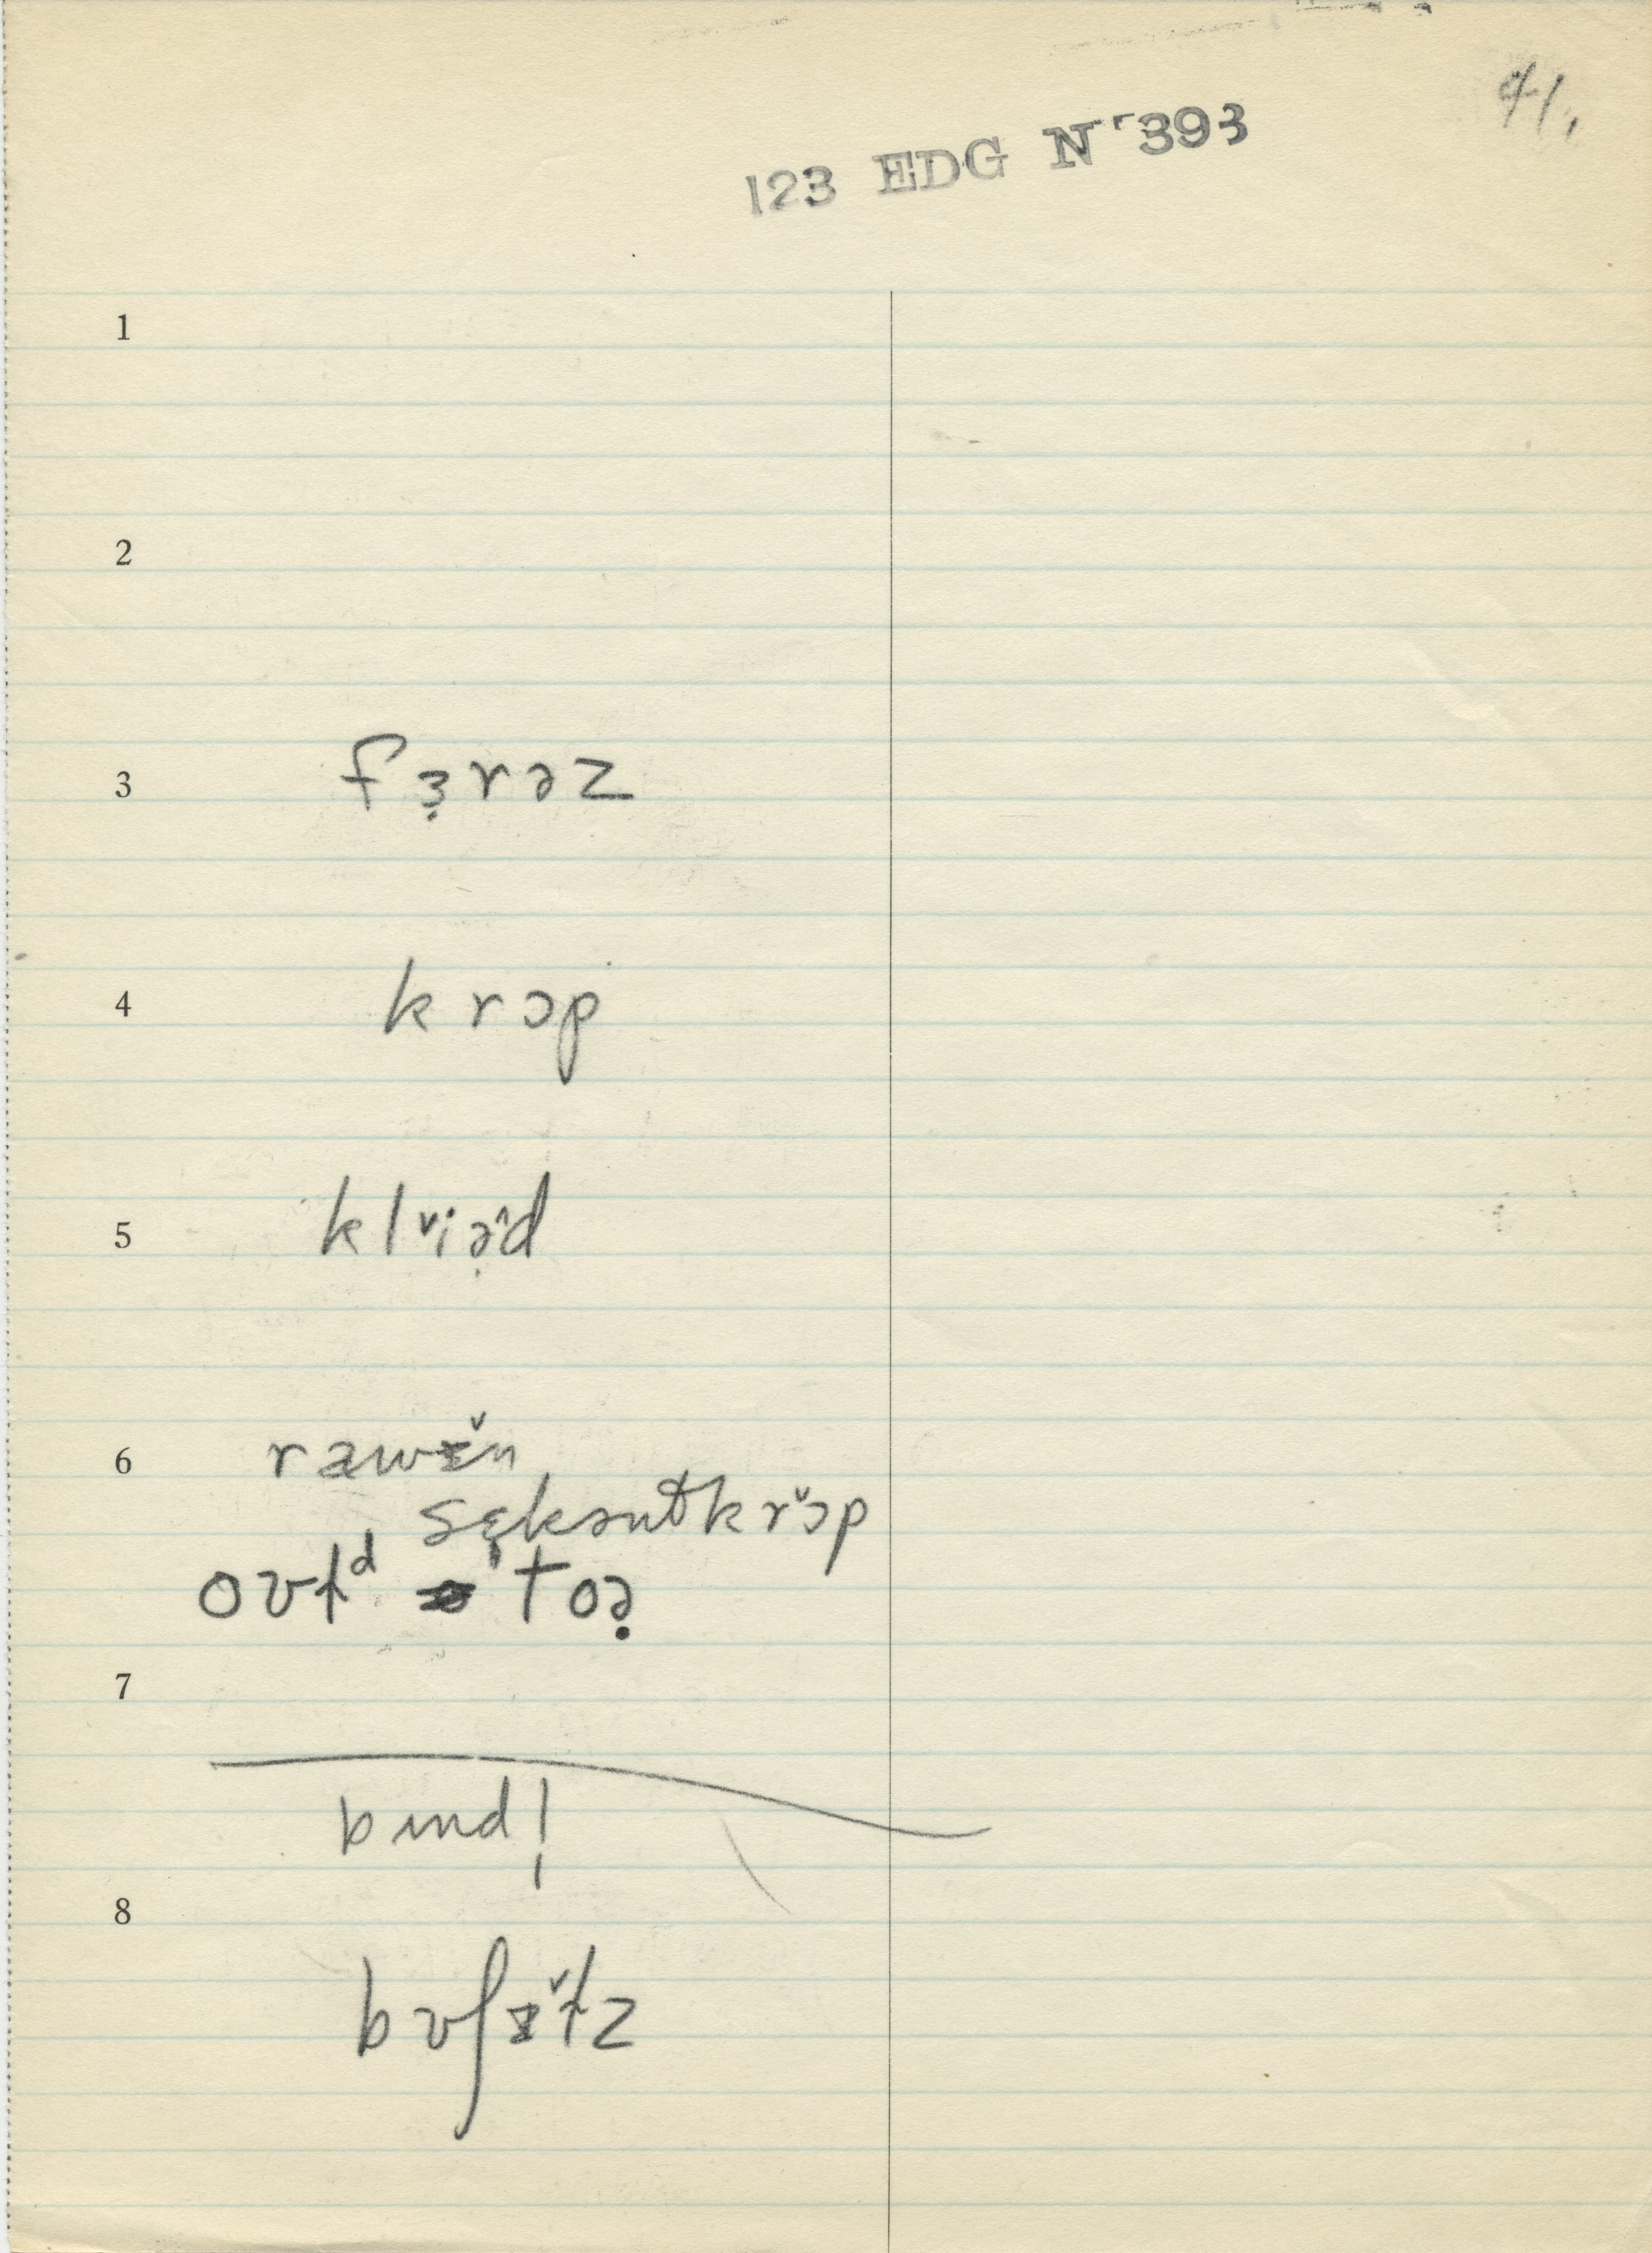 41.
123 EDG N 393
1
2
3 fɜ̣rəz
4 krɔp
5 klᵛiə̣̂d
6 ræwɪ̌n
sɛ̣kəntkrɔ̌p
ovtᵈ toə̣
7
bɪnd!
8
bʊʃɪ̌tz